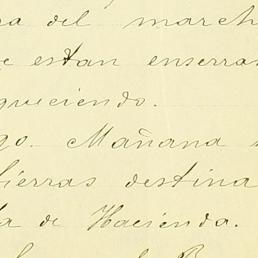 del march
e estan enserra
queciendo.
go. Mañana
fierras destina
la de Hacienda.